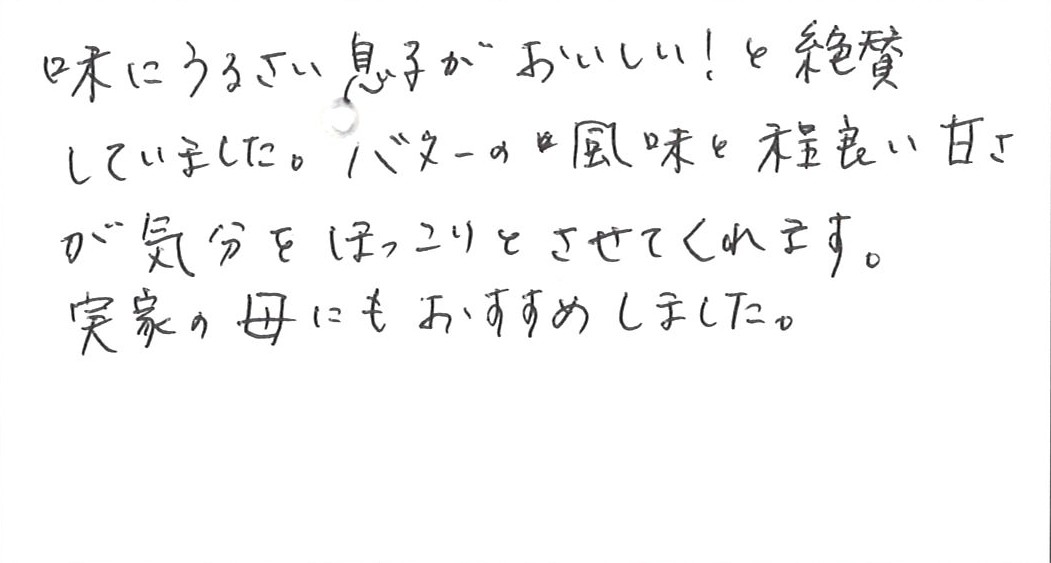 味にうるさい息子がおいしい！と絶賛
していました。バターの風味と程良い甘さ
が気分をほっこりとさせてくれます。
実家の母にもおすすめしました。